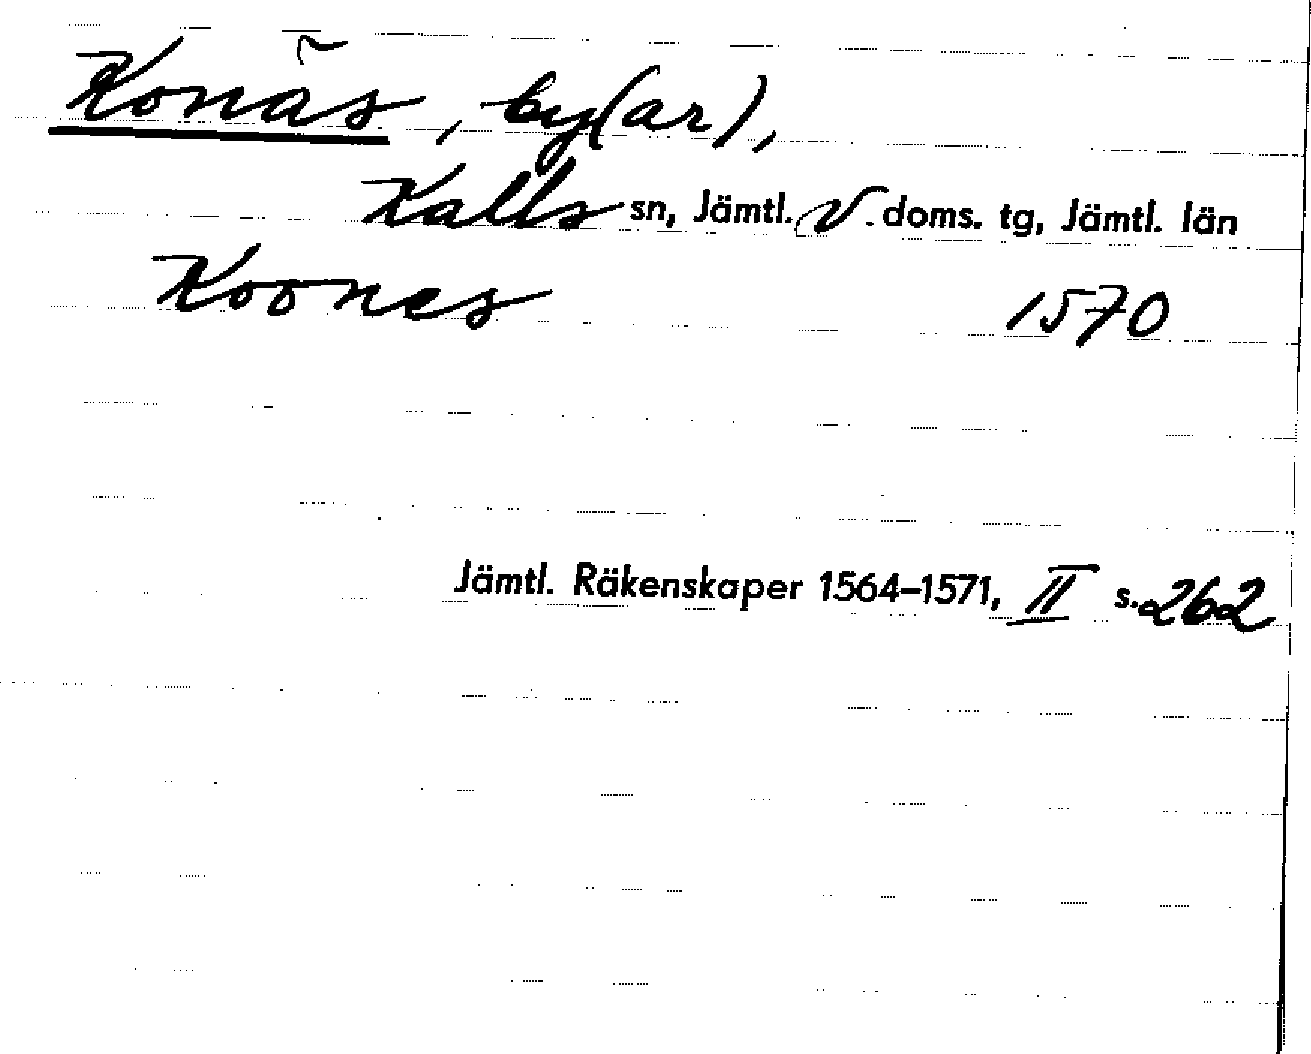 Konäs, by(ar),
Kalls sn, Jämtl. V. doms. tg, Jämtl. län
Koones 1570
Jämtl. Räkenskaper 1564–1571, II s. 262